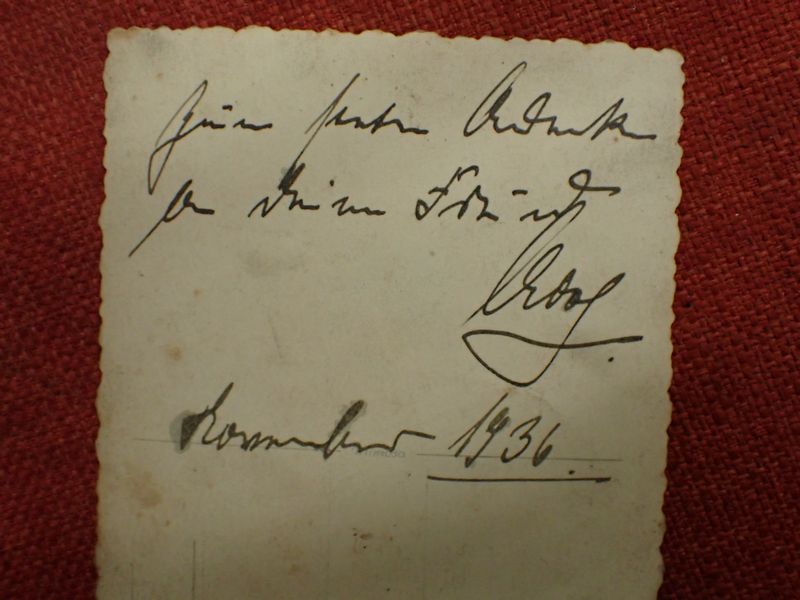 Zum steten Andenken
an deinen Freund
November 1936.